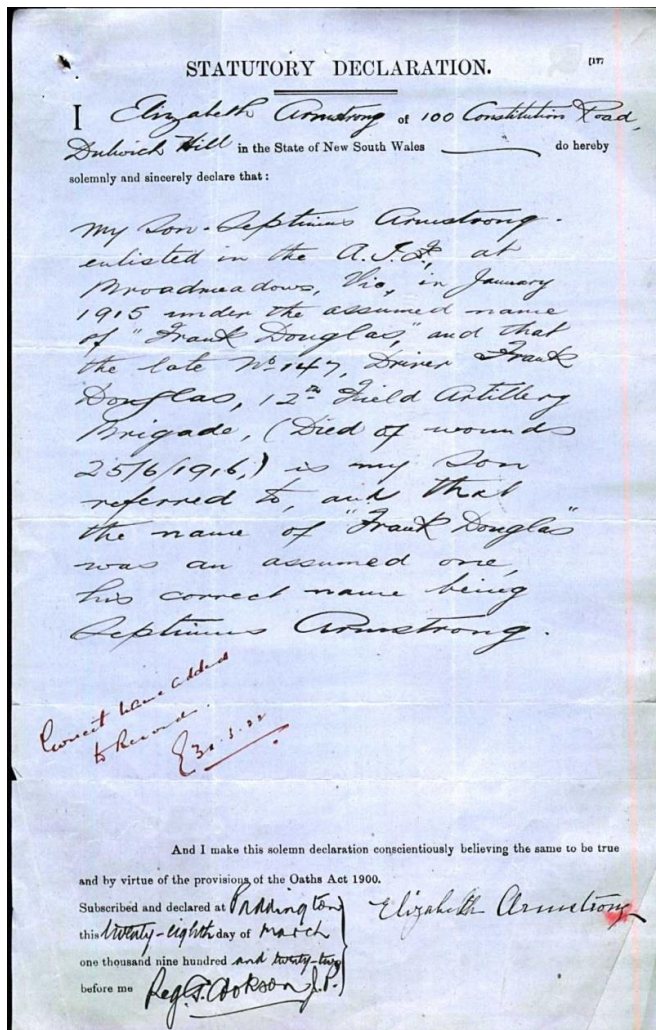 STATUTORY DECLARATION.
[17]
I Elizabeth Armstrong of 100 Constitution Road,
Dulwich Hill in the State of New South Wales do hereby
solemnly and sincerely declare that :
my Son - Septimus Armstrong.
enlisted in the A.I.F., at
Broadmeadows, Vic, in January
1915 under the assumed name
of "Frank Douglas", and that
the late No 147, Driver Frank
Douglas, 12th Field Artillery
Brigade, (Died of wounds
25/6/1916,) is my Son
referred to, and that
the name of "Frank Douglas"
was an assumed one,
his correct name being
Septimus Armstrong.
Correct name added
to Records.
And I make this solemn declaration conscientiously believing the same to be true
and by virtue of the provisions of the Oaths Act 1900.
Subscribed and declared at Paddington
this twenty-eighth day of March
one thousand nine hundred and twenty-two
before me Reg. T. Cookson J.P.
Elizabeth Armstrong